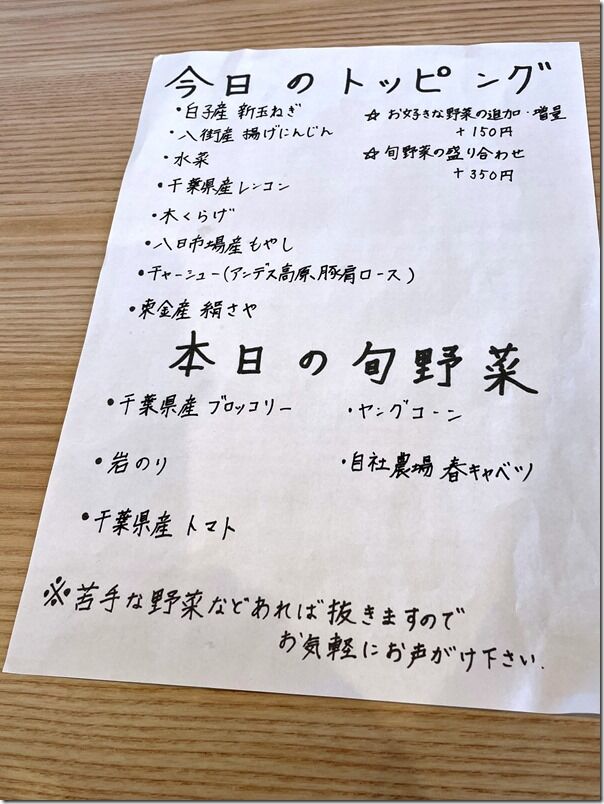 今日のトッピング
・白子産 新玉ねぎ
・八街産 揚げにんじん
・水菜
・千葉県産 レンコン
・木くらげ
・八日市場産 もやし
・チャーシュー(アンデス高原、豚肩ロース)
・東金産 絹さや
☆ お好きな野菜の追加・増量
+150円
☆ 旬野菜の盛り合わせ
+350円
本日の旬野菜
・千葉県産 ブロッコリー
・ヤングコーン
・岩のり
・自社農場 春キャベツ
・千葉県産 トマト
※苦手な野菜などあれば抜きますので
お気軽にお声がけ下さい.